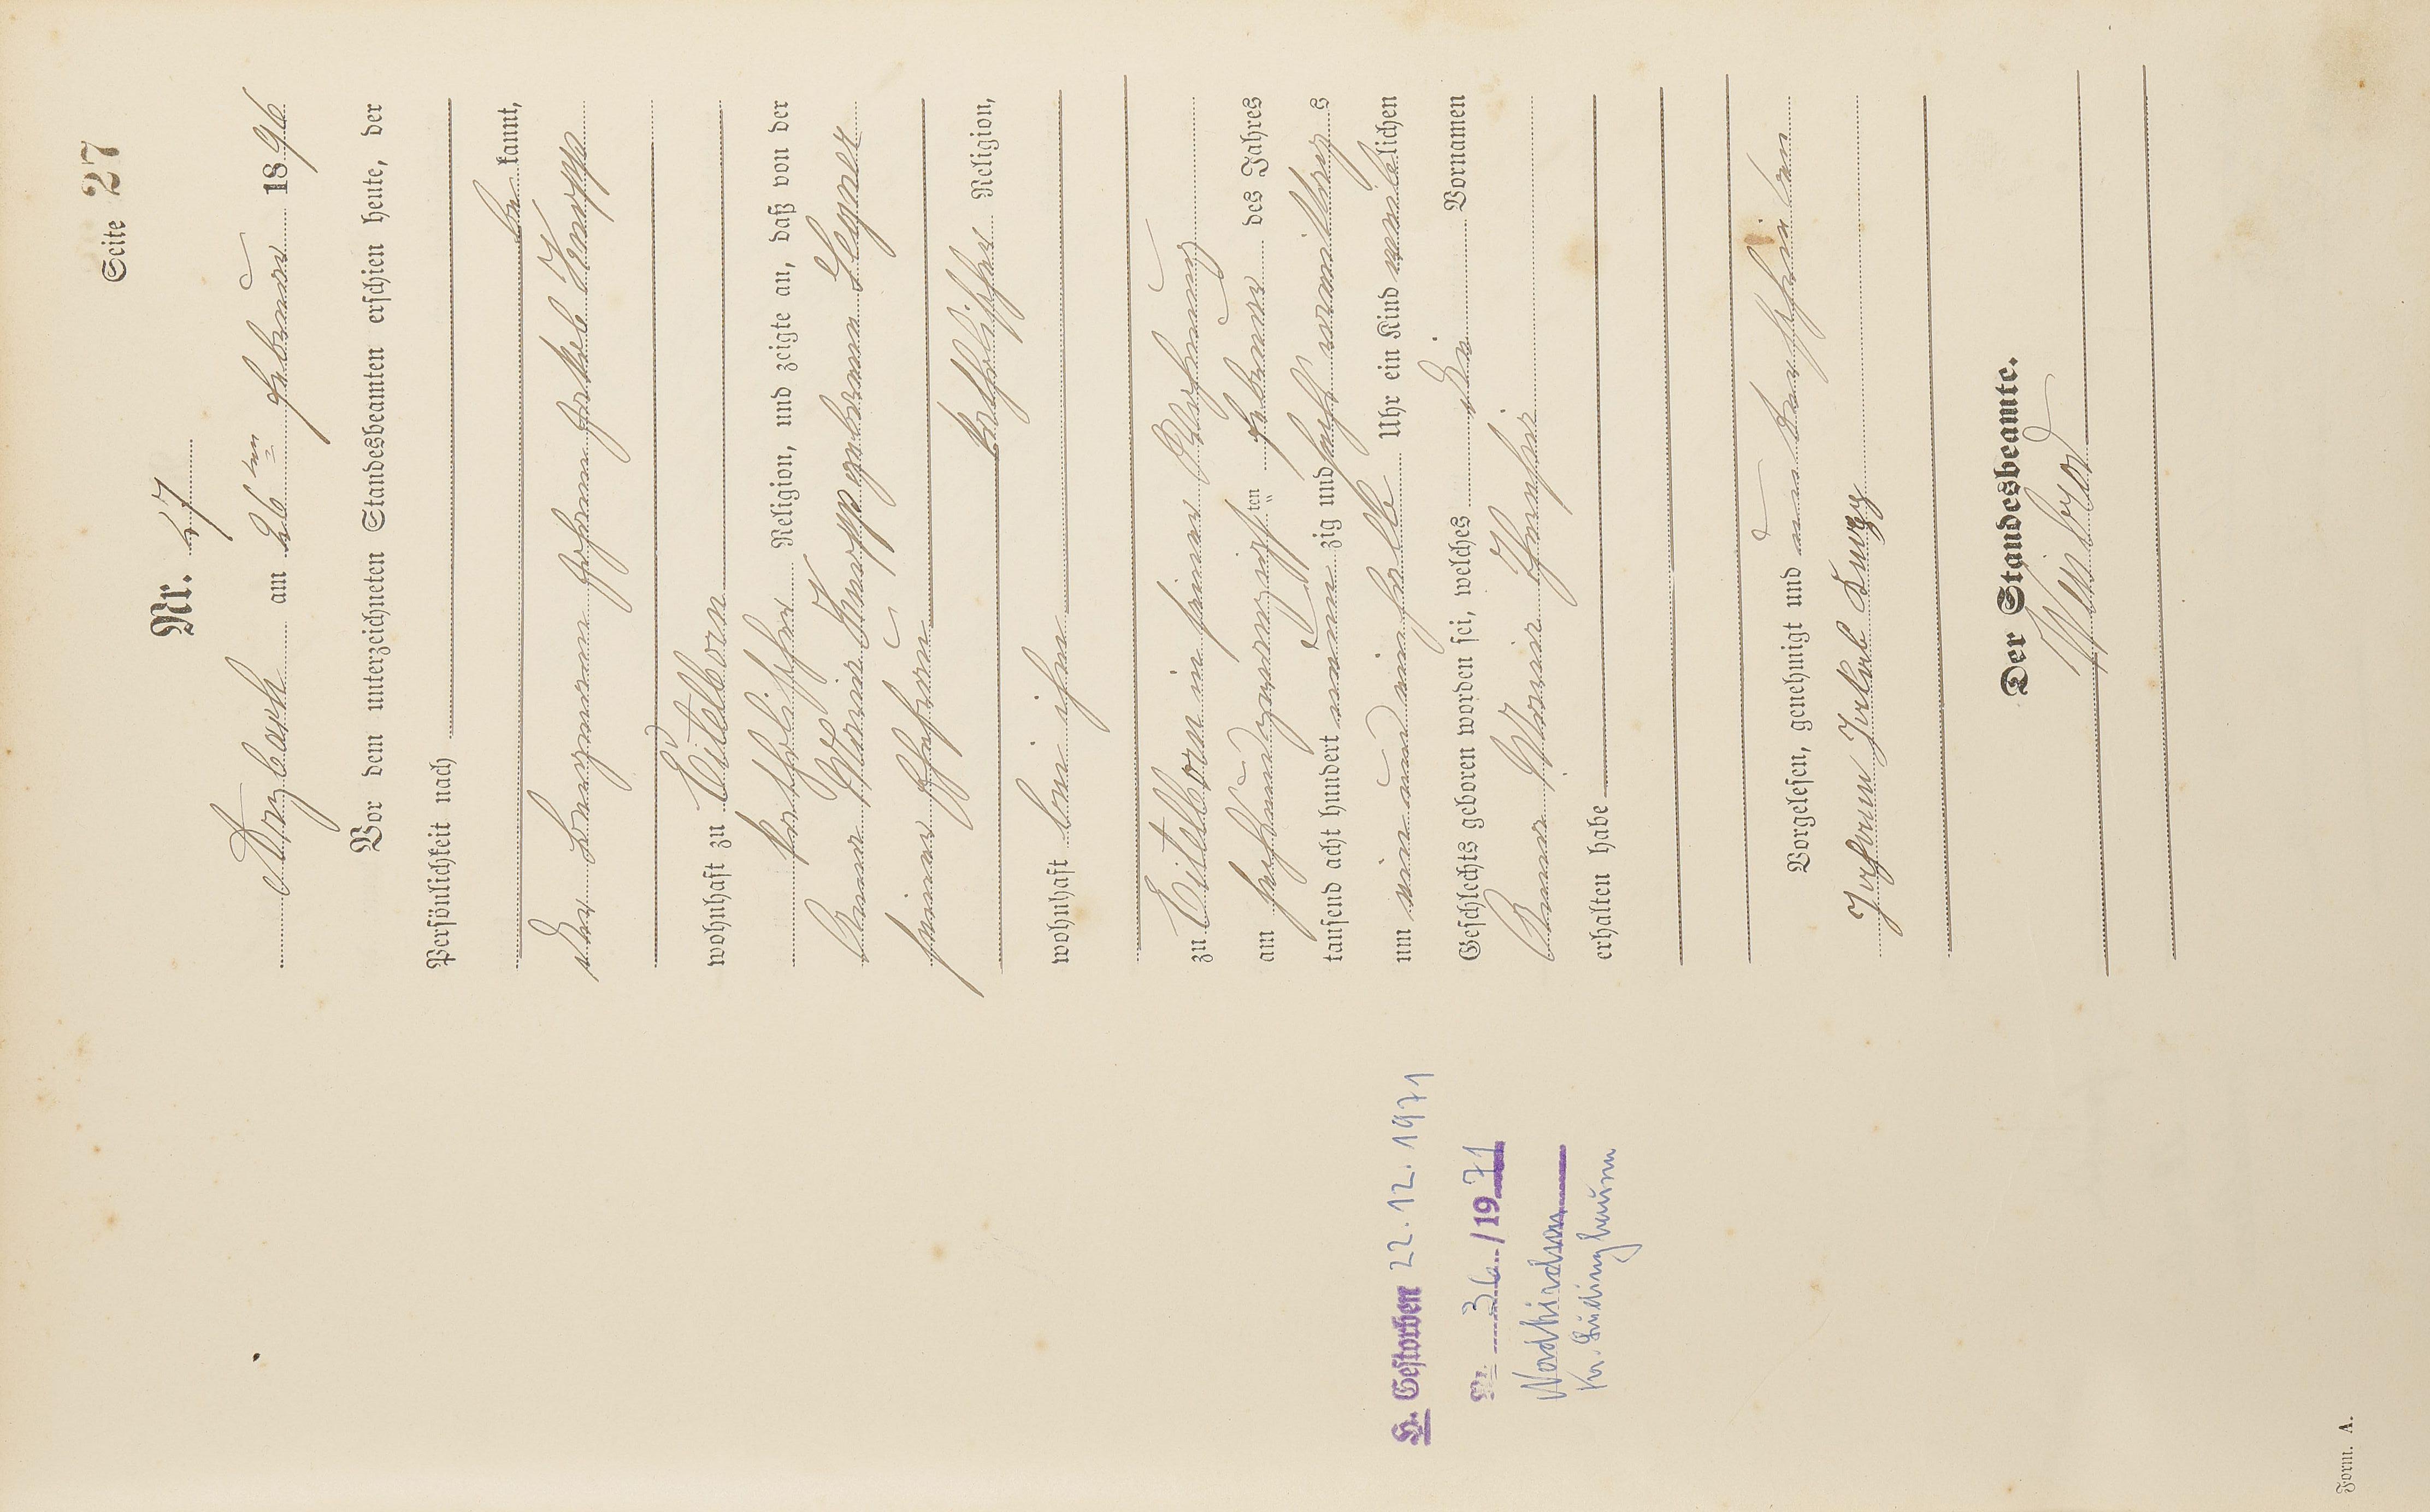 Seite 27
Nr. 27
Arzbach am 26ten Februar 1896
Vor dem unterzeichneten Standesbeamten erschien heute, der
Persönlichkeit nach
be kannt,
der Bergmann Johann Jakob Knopp
wohnhaft zu Eitelborn
katholischer Religion, und zeigte an, daß von der
Anna Maria Knopp geborenen
seiner Ehefrau
katholischer Religion,
wohnhaft bei ihm
zu Eitelborn in seiner Wohnung
am sechsundzwanzigsten ten Februar des Jahres
tausend acht hundert neun zig und sechs vormittags
um ein und ein halb Uhr ein Kind weiblichen
Geschlechts geboren worden sei, welches die Vornamen
Anna Maria
erhalten habe
Vorgelesen, genehmigt und unterschrieben
Johann Jakob Knopp
Der Standesbeamte.
H. Gestorben 22.12.1971
Nr. 36/1971
Nordkirchen
Kr. Lüdinghausen
Form. A.